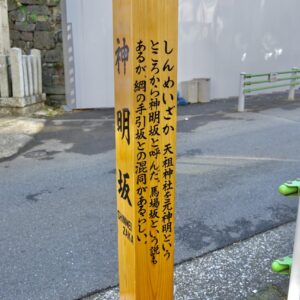 神明坂
SHINMEI
ZAKA
しんめいざか 天祖神社を元神明という
ところから神明坂と呼んだ。馬場坂という説も
あるが綱の手引坂との混同があるらしい。